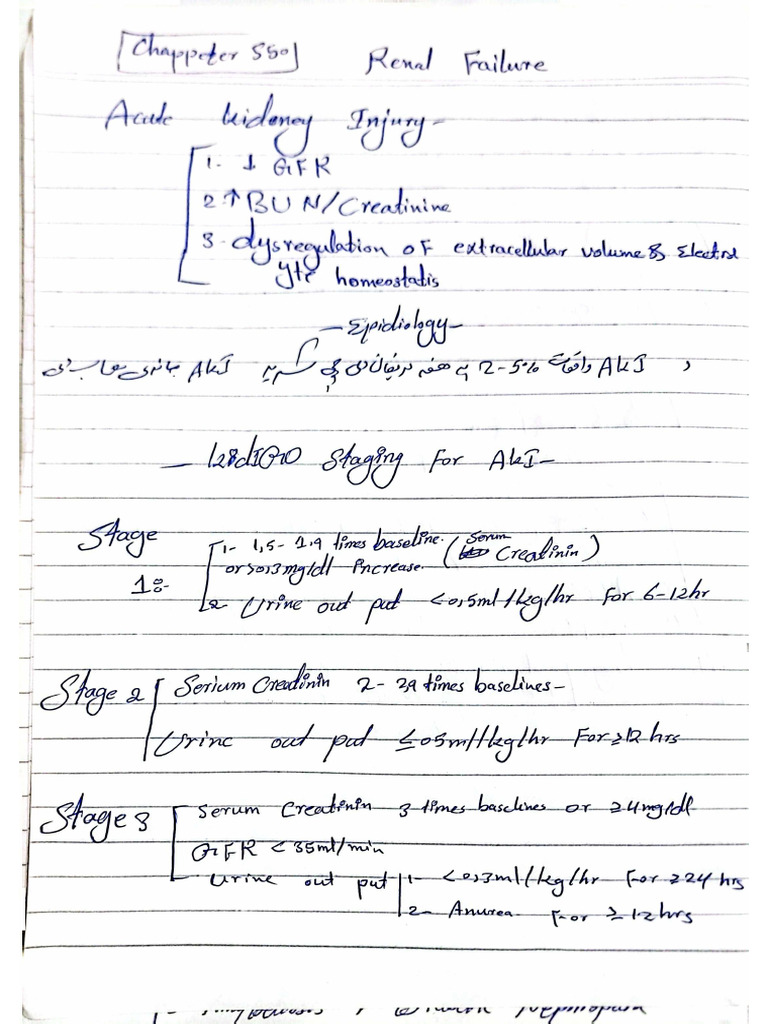 Chappeter 550 Renal Failure
Acute kideney Injury-
1- ↓ GFR
2 ↑ BUN/Creatinine
3- dysregulation of extracellular volume & Electrol
yte homeostatis
-Epidiology-
AKI 2-5% په AKI
KdIGO Staging For AKI-
Stage
1:-
1- 1,5-1,9 times baseline. (Serum Creatinin)
or >0,3mg/dl increase.
2- Urine out put <0,5ml/kg/hr For 6-12hr
Stage 2
Serium Creatinin 2-2,9 times baselines-
Urine out put ≤05ml/kg/hr For ≥12 hrs
Stage 3
Serum Creatinin 3 times baselines or ≥4mg/dl
GFR <35ml/min
Urine out put 1- <0,3ml/kg/hr For ≥24 hrs
2- Anurea For ≥12hrs